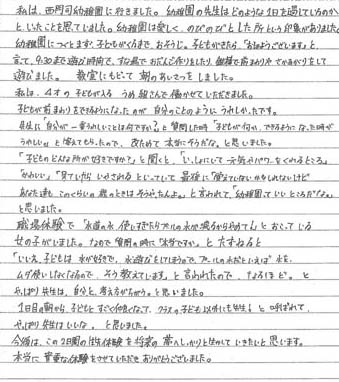 私は、西門司幼稚園に行きました。幼稚園の先生はどのような1日を過しているのか
と、いったことを思っていました。幼稚園は楽しく、のびのびとした所という印象がありました。
幼稚園につくとまず、子どもがくるまで、おそうじ。子どもがきたら、「おはようございます。」と
言って、9:30まで遊ぶ時間で、すな場でおだんご作りをしたり、個横で前まわりやさかあがりをして
遊びました。 教室にもどって朝のあいさつをしました。
私は、4才の子どもがいる うめ組さんで働かせていただきました。
子どもが前まわりをできるようになったのが 自分のことのように うれしかったです。
先生に「自分が一番うれしいことは何ですか?」と質問した時「子どもが何か、できるようになった時が
うれしい。」と答えてもらったので、改ためて本当にそうだな。と思いました。
「子どものどんな所が好きですか?」と聞くと、「いっしょにして元気やパワーをくれるところ。」
「かわいい」「見ていたら いやされる」といっていて最後に「覚えていないかもしれないけど
あなた達も、このくらいの歳のときはそうやったんよ。」と言われて、「幼稚園っていいところだなぁ。」
と思いました。
職場体験で 「水道の水 使いすぎたらプールの水が減るからやめて」とおこっている
女の子がいました。なので質問の時に"本当ですか。"とたずねると
「いいえ、子どもは 水が好きで、水遊びをしてしまうので、プールの水だといえば"水を、
ムダ使いしなくなるので、そう教えています。」と言われたので、なるほど。と
やっぱり先生は、自分と、考え方がちがう。と思いました。
1日目の朝から、子どもとすごく仲良くなって、クラスの子ども以外にも先生!と呼ばれて、
やっぱり先生はいいな。と思いました。
今後は、この2日間の体験を将来の夢へしっかりと生かしていきたいと思います。
本当に貴重な体験をさせていただき ありがとうございました。